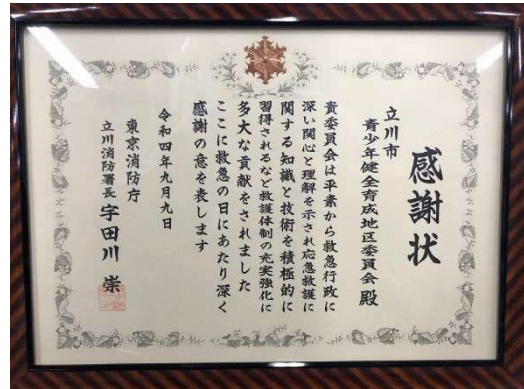 感謝状
立川市
青少年健全育成地区委員会 殿
貴委員会は平素から救急行政に
深い関心と理解を示され応急救護に
関する知識と技術を積極的に
習得されるなど救護体制の充実強化に
多大な貢献をされました
ここに救急の日にあたり深く
感謝の意を表します
令和四年九月九日
東京消防庁
立川消防署長 宇田川 崇